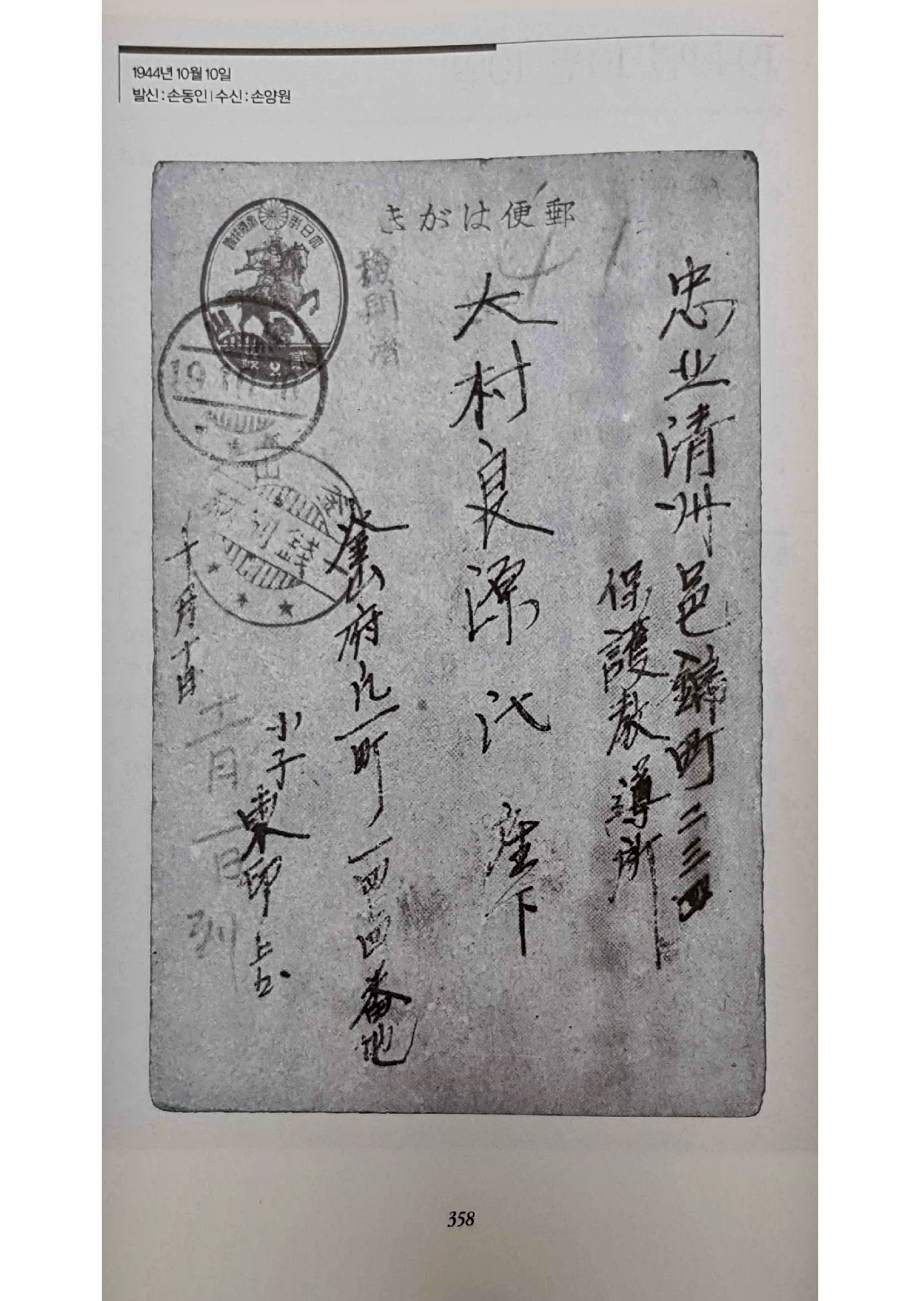 1944년 10월 10일
발신 : 손동인 | 수신 : 손양원
きがは便郵
忠北清州邑錦町二三四
保護教導所
大村良源氏 座下
釜山府凡一町一四四番地
小子東印上書
十月十日
検閲済
十一月一日
19.10.10
358